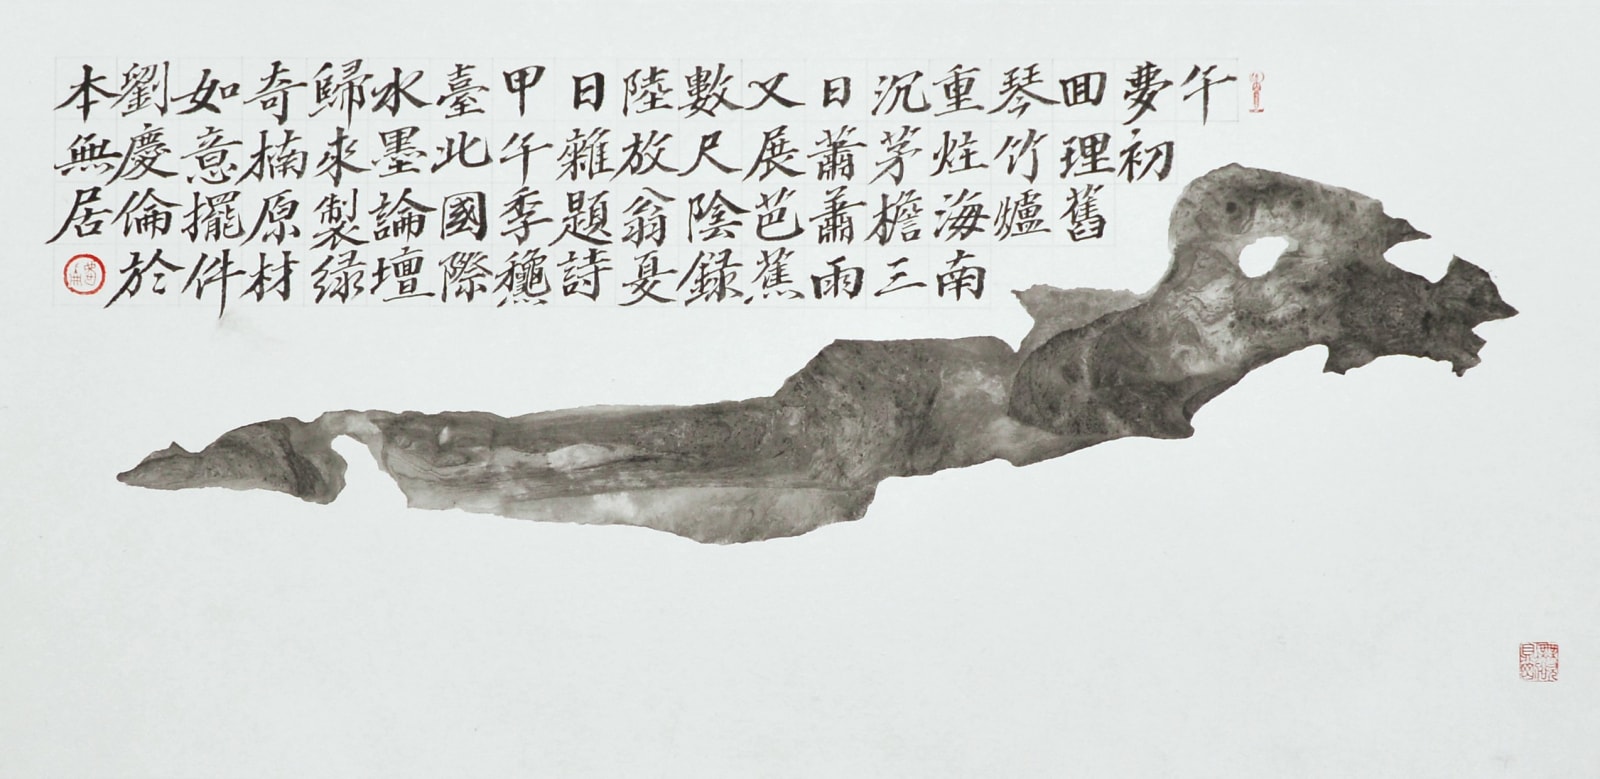 午
夢初
囬理舊
琴竹爐
重炷海南
沉茅檐三
日蕭蕭雨
又展芭蕉
數尺陰錄
陸放翁夏
日雜題詩
甲午季龝
臺北國際
水墨論壇
歸來製綠
奇楠原材
如意擺件
劉慶倫於
本無居